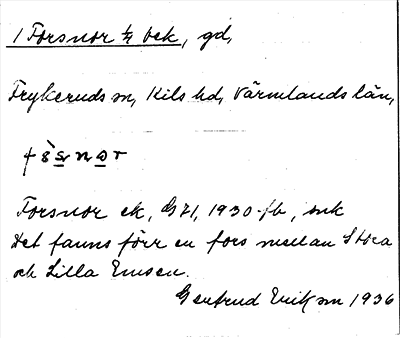 1 Forsnor ¼ bek, gd,
Frykeruds sn, Kils hd, Värmlands län,
Forsnor ek, G71, 1930-fb, mtk
Det fanns förr en fors mellan Stora
och Lilla Emsen.
Gertrud Eriksson 1936